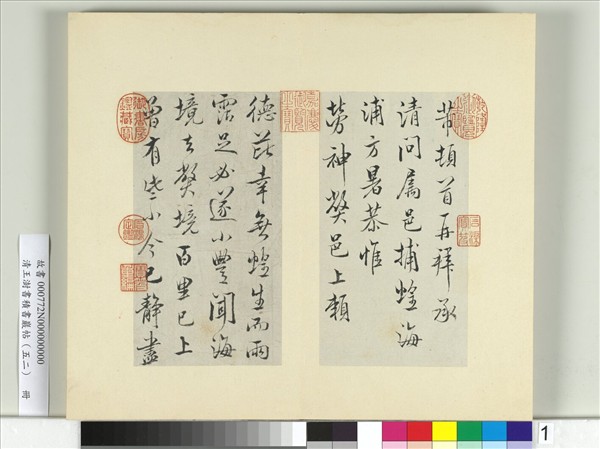 芾頓首再拜承
清問屬邑捕蝗海
浦方暑恭惟
勞神獘邑上賴
德芘幸無蝗生而雨
霑足必遂小豐聞海
境去獘境百里已上
曾有些小今已靜盡
故書000772N000000000
清王澍書積書巖帖(五二) 冊
1